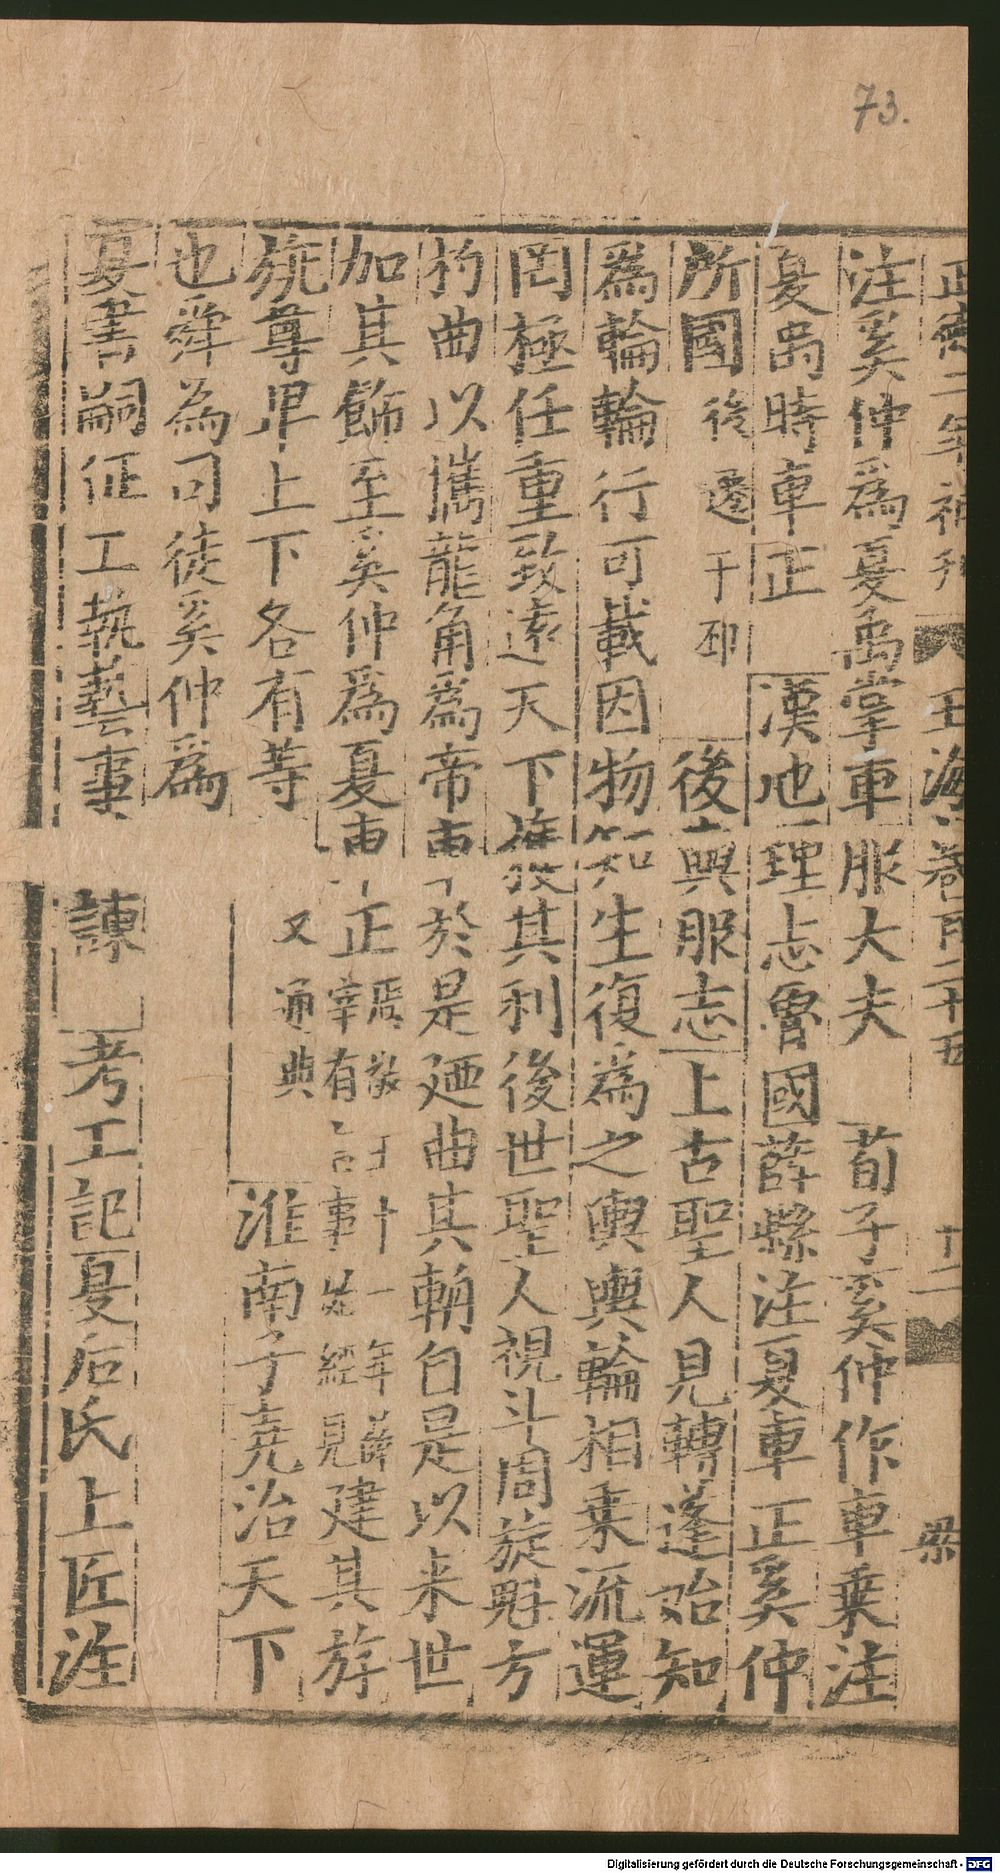 73.
正德二年補刊 玉海卷百二十五 十二
注奚仲爲夏禹掌車服大夫 荀子奚仲作車乗注
夏禹時車正 漢地理志魯國薛縣注夏車正奚仲
所國後遷于邳 後輿服志上古聖人見轉蓬始知
爲輪輪行可載因物知生復為之輿輿輪相乗流運
罔極任重致遠天下獲其利後世聖人視斗周旋魁方
杓曲以㩦龍角爲帝車於是廼曲其輈自是以来世
加其飾至奚仲爲夏車正建其斿
旐尊卑上下各有等 又通典 淮南子堯治天下
也舜為司徒奚仲爲
夏書嗣征工執藝事 諫 考工記夏后氏上匠注
Digitalisierung gefördert durch die Deutsche Forschungsgemeinschaft - DFG